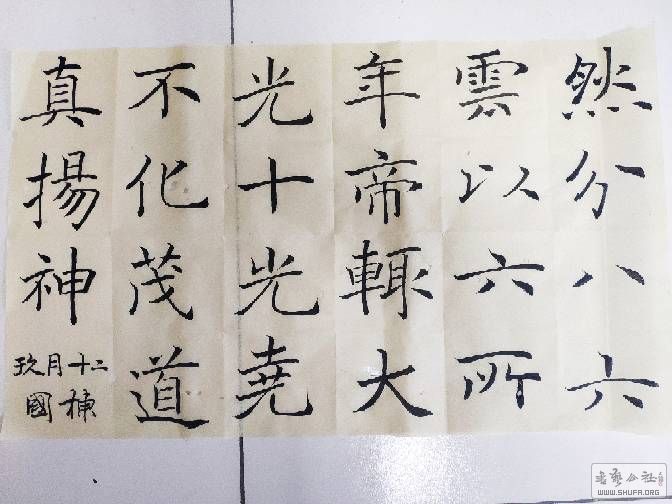 然分八六
雲以六所
年帝輙大
光十光堯
不化茂道
真揚神
玖月十二
國棟
書藝公社
WWW.SHUFA.ORG